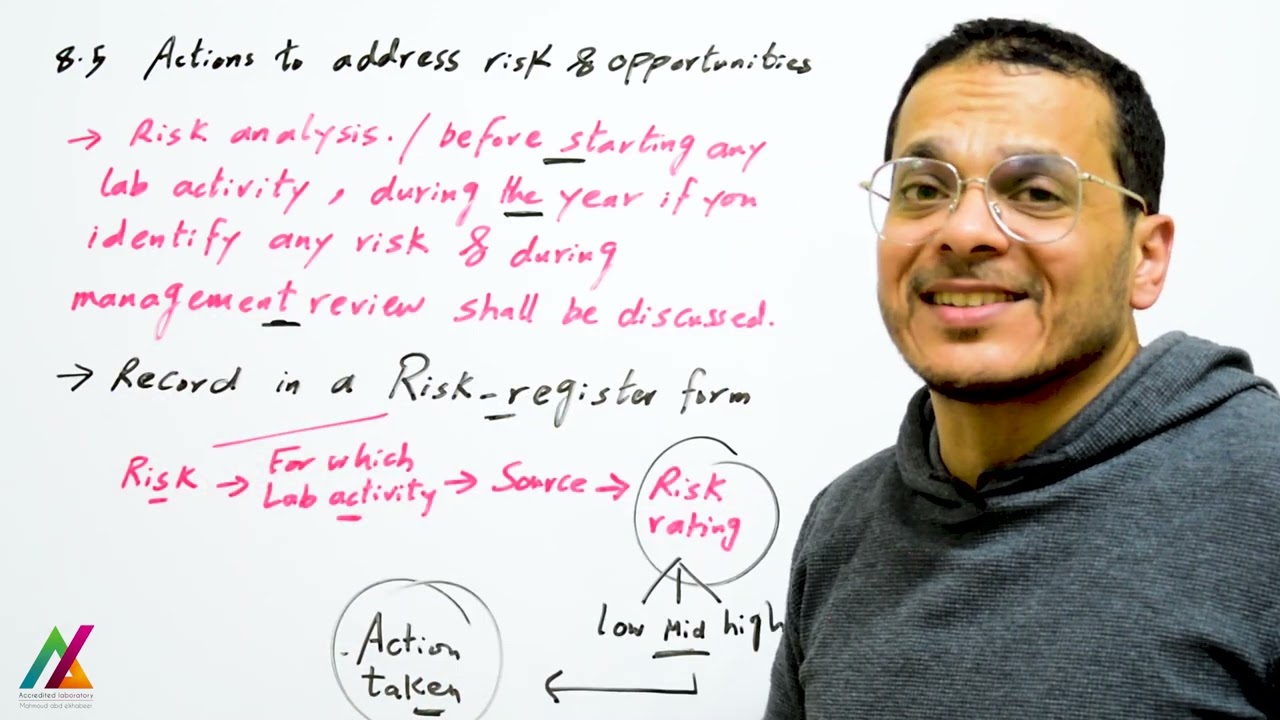 8.5 Actions to address risk & opportunities
→ Risk analysis. / before starting any
Lab activity, during the year if you
identify any risk & during
management review shall be discussed.
→ Record in a Risk-register form
Risk → For which Lab activity → Source → Risk rating
low Mid high
Action
taken
Accredited laboratory
Mahmoud abd elkhabeer